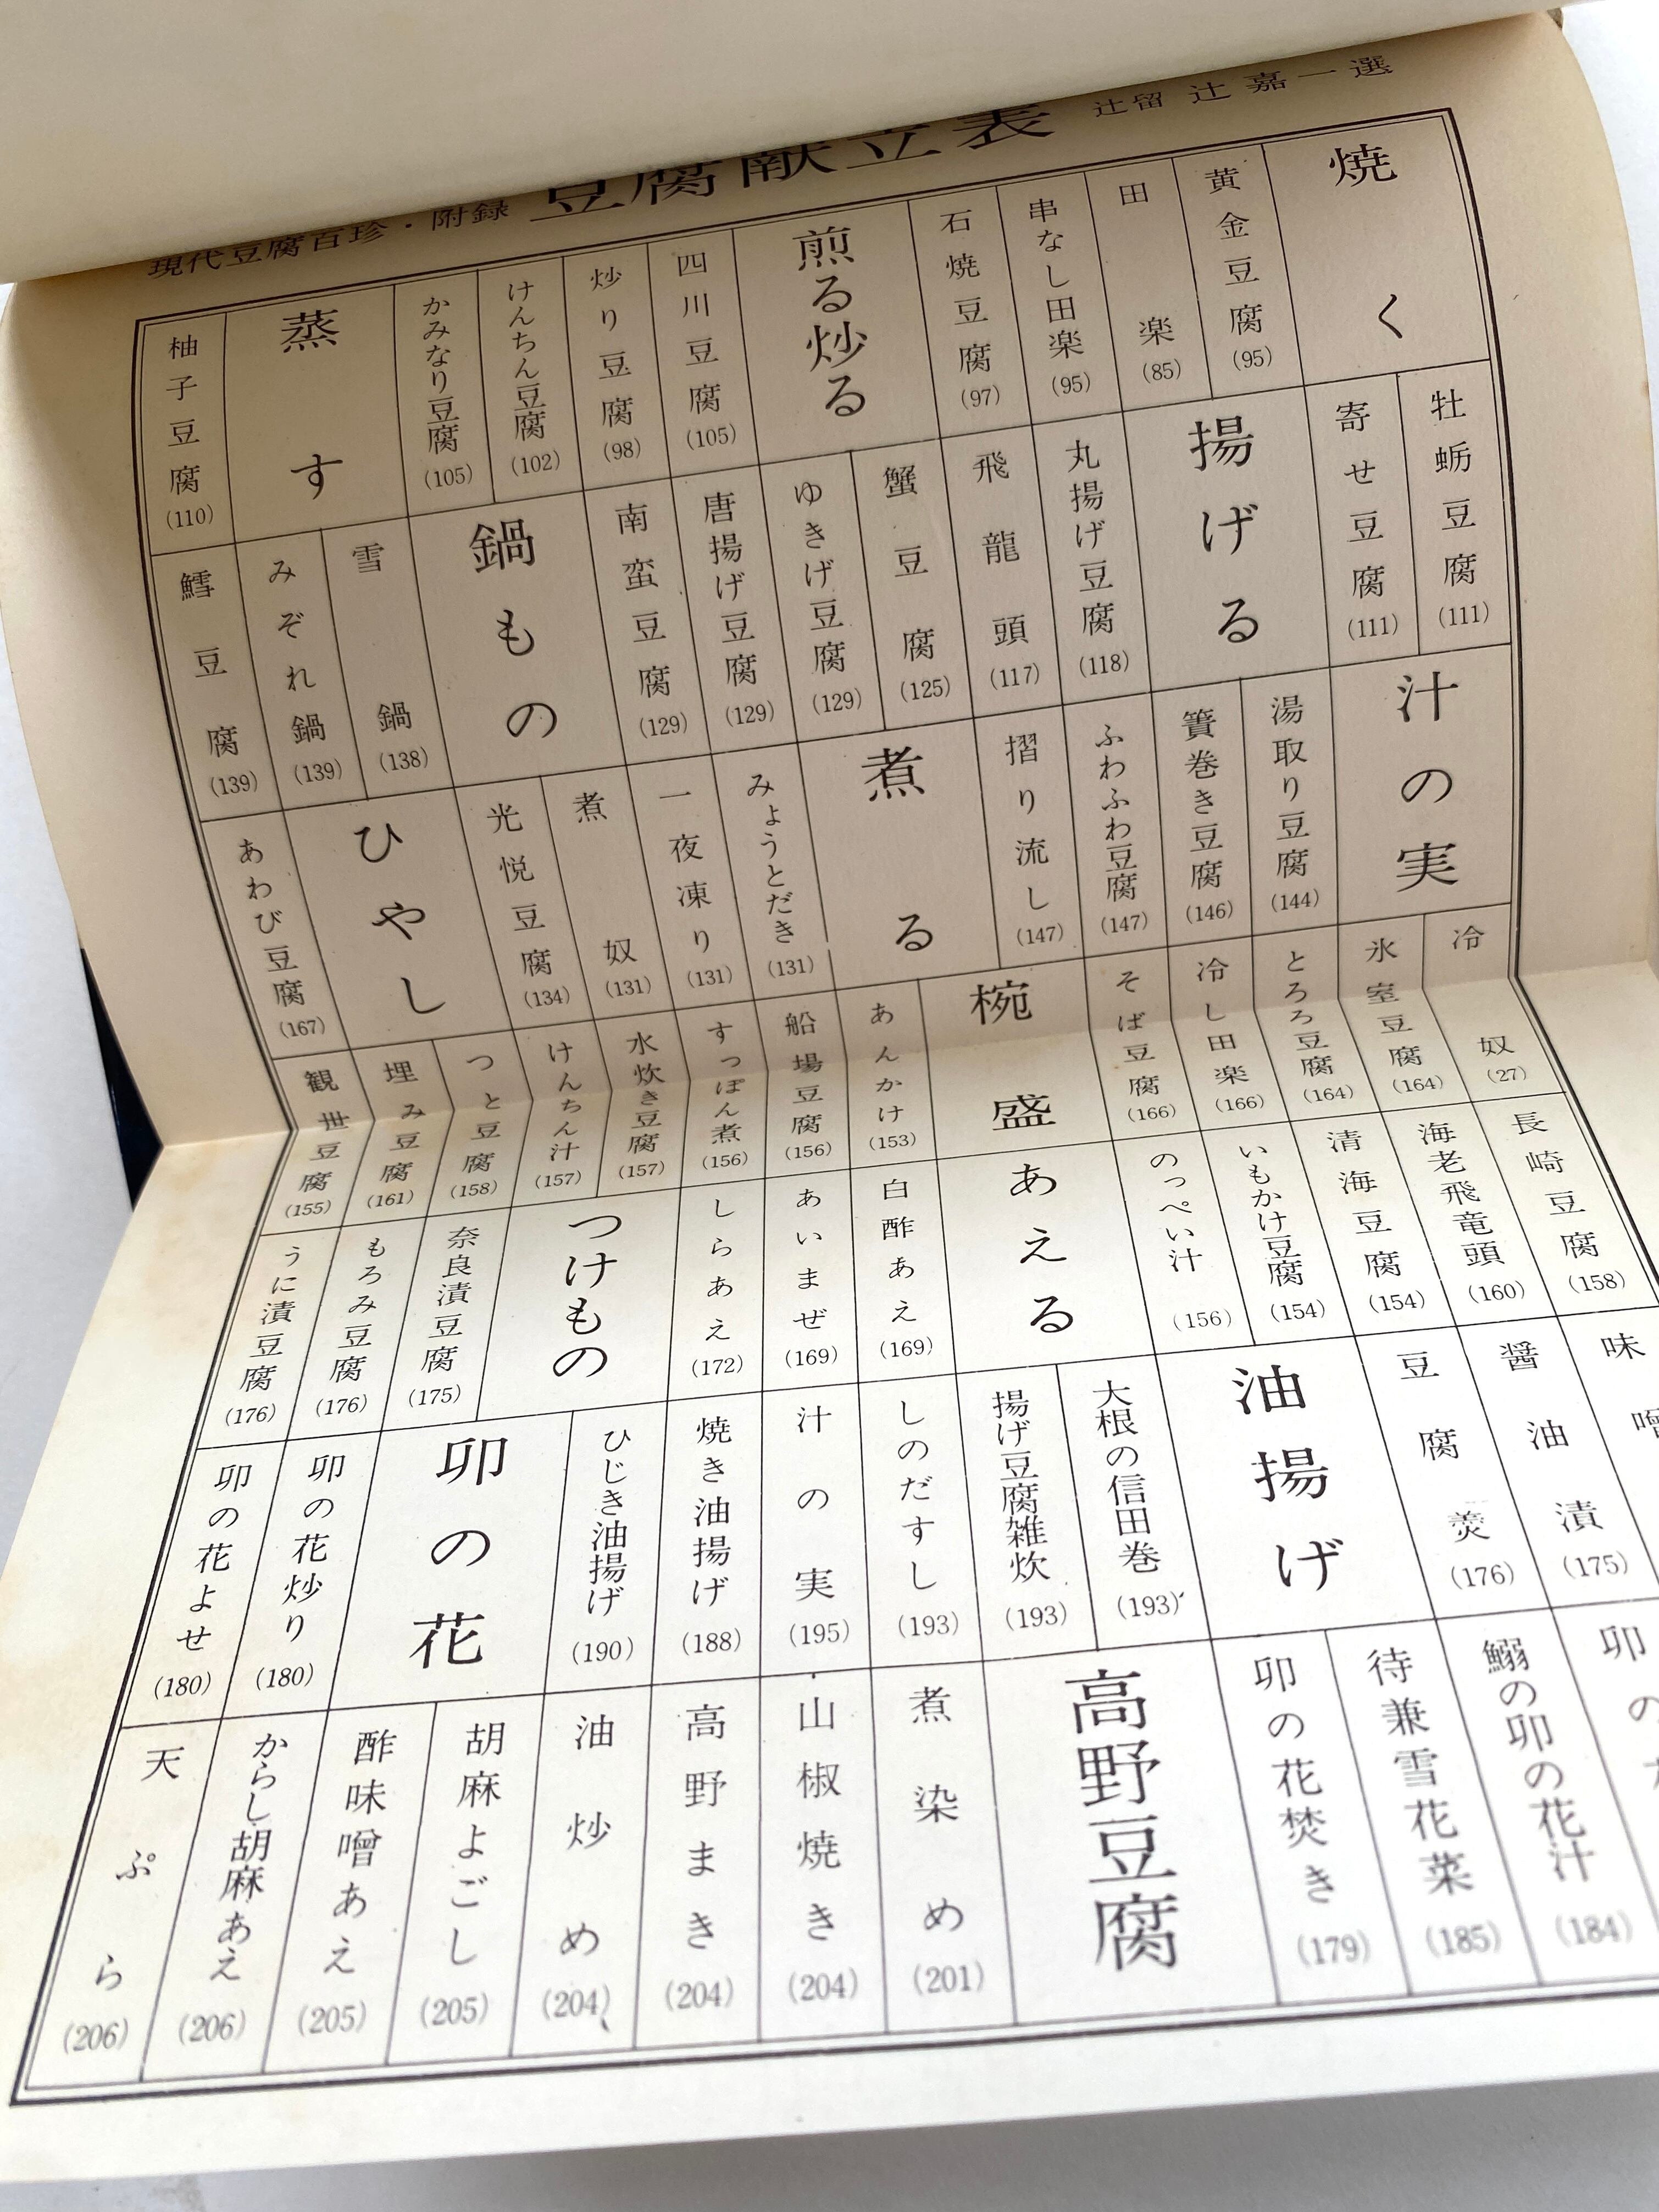 現代豆腐百珍・附録
豆腐献立表
辻留 辻嘉一選
焼く
黄金豆腐(95)
田楽(85)
串なし田楽(95)
石焼豆腐(97)
煎る炒る
四川豆腐(105)
炒り豆腐(98)
けんちん豆腐(102)
かみなり豆腐(105)
蒸す
柚子豆腐(110)
牡蛎豆腐(111)
寄せ豆腐(111)
揚げる
丸揚げ豆腐(118)
飛龍頭(117)
蟹豆腐(125)
ゆきげ豆腐(129)
唐揚げ豆腐(129)
南蛮豆腐(129)
鍋もの
雪鍋(138)
みぞれ鍋(139)
鱈豆腐(139)
汁の実
湯取り豆腐(144)
簀巻き豆腐(146)
ふわふわ豆腐(147)
摺り流し(147)
煮る
みょうとだき(131)
一夜凍り(131)
煮奴(131)
光悦豆腐(134)
ひやし
あわび豆腐(167)
冷奴(27)
氷室豆腐(164)
とろろ豆腐(164)
冷し田楽(166)
そば豆腐(166)
椀盛
あんかけ(153)
船場豆腐(156)
すっぽん煮(156)
水炊き豆腐(157)
けんちん汁(157)
つと豆腐(158)
埋み豆腐(161)
観世豆腐(155)
長崎豆腐(158)
海老飛竜頭(160)
清海豆腐(154)
いもかけ豆腐(154)
のっぺい汁(156)
あえる
白酢あえ(169)
あいまぜ(169)
しらあえ(172)
つけもの
奈良漬豆腐(175)
もろみ豆腐(176)
うに漬豆腐(176)
味噌
醤油漬(175)
豆腐羮(176)
油揚げ
大根の信田巻(193)
揚げ豆腐雑炊(193)
しのだすし(193)
汁の実(195)
焼き油揚げ(188)
ひじき油揚げ(190)
卯の花
卯の花炒り(180)
卯の花よせ(180)
卯の
鰯の卯の花汁(184)
待兼雪花菜(185)
卯の花焚き(179)
高野豆腐
煮染め(201)
山椒焼き(204)
高野まき(204)
油炒め(204)
胡麻よごし(205)
酢味噌あえ(205)
からし胡麻あえ(206)
天ぷら(206)